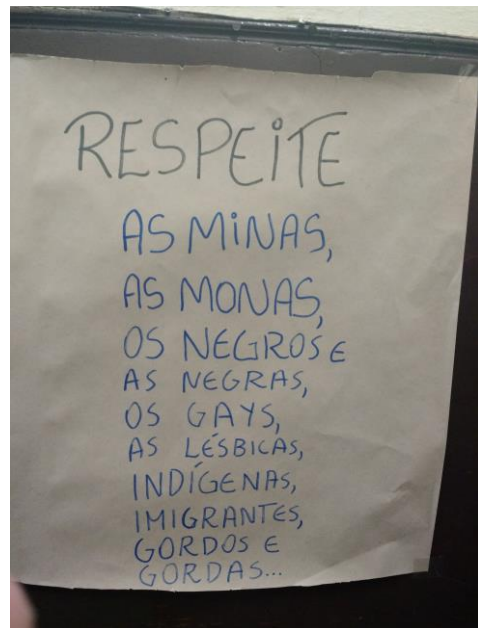 RESPEITE
AS MINAS,
AS MONAS,
OS NEGROS E
AS NEGRAS,
OS GAYS,
AS LÉSBICAS,
INDÍGENAS,
IMIGRANTES,
GORDOS E
GORDAS...